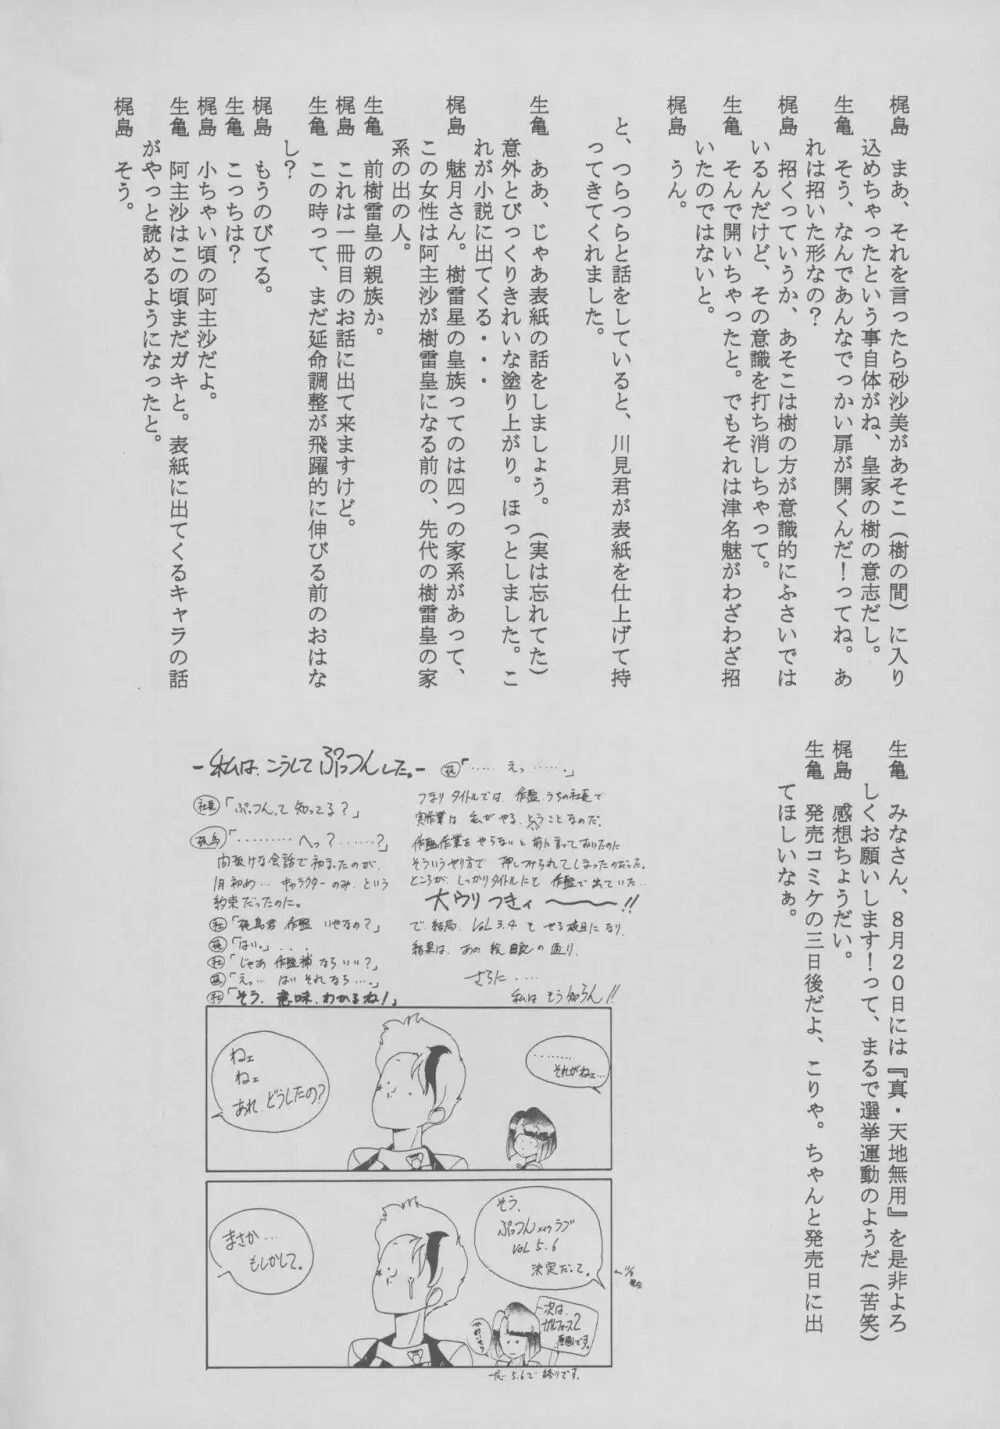 梶島　まあ、それを言ったら砂沙美があそこ（樹の間）に入り
込めちゃったという事自体がね、皇家の樹の意志だし。
生亀　そう、なんであんなでっかい扉が開くんだ！ってね。あ
れは招いた形なの？
梶島　招くっていうか、あそこは樹の方が意識的にふさいでは
いるんだけど、その意識を打ち消しちゃって。
生亀　そんで開いちゃったと。でもそれは津名魅がわざわざ招
いたのではないと。
梶島　うん。
と、つらつらと話をしていると、川見君が表紙を仕上げて持
ってきてくれました。
生亀　ああ、じゃあ表紙の話をしましょう。（実は忘れてた）
意外とびっくりきれいな塗り上がり。ほっとしました。こ
れが小説に出てくる・・・
梶島　魅月さん。樹雷星の皇族ってのは四つの家系があって、
この女性は阿主沙が樹雷皇になる前の、先代の樹雷皇の家
系の出の人。
生亀　前樹雷皇の親族か。
梶島　これは一冊目のお話に出て来ますけど。
生亀　この時って、まだ延命調整が飛躍的に伸びる前のおはな
し？
梶島　もうのびてる。
生亀　こっちは？
梶島　小ちゃい頃の阿主沙だよ。
生亀　阿主沙はこの頃まだガキと。表紙に出てくるキャラの話
がやっと読めるようになったと。
梶島　そう。
生亀　みなさん、８月２０日には『真・天地無用』を是非よろ
しくお願いします！って、まるで選挙運動のようだ（苦笑）
梶島　感想ちょうだい。
生亀　発売コミケの三日後だよ、こりゃ。ちゃんと発売日に出
てほしいなぁ。
-私は、こうしてぷっつんした。-
社長「ぷっつんって知ってる？」
梶島「………へっ？……？」
間抜けな会話で初まったのが、
1月初め… キャラクターのみ、という
約束だったのに。
社「梶島君 作監 いやなの？」
梶「はい。」...
社「じゃあ 作監補 ならいい？」
梶「えっ… はい それなら….」
社「そう、意味、わかるね！」
梶「…… えっ…….」
つまり タイトルでは、作監、うちの社長で
実作業は 私がやる、とうことなのだ、
作監作業をやらないと前に言っておいたのに
そういうやり方で 押しつけられてしまったのだった。
ところが、しっかりタイトルにて 作監で出ていた…
大ウソ つきィ〜〜〜!!
で、結局、VOL 3.4 と
結果は、あの 絵 の通り、
さらに・・・
私は もう知らん!!
ねェ
ねェ
あれ、どうしたの？
………
それがねェ…
まさか…
もしかして。
そう、
ぷっつんメイクラブ
VOL 5.6
決定だって。
次は、
ガルフォース2
原画です。
5.6で終りです。